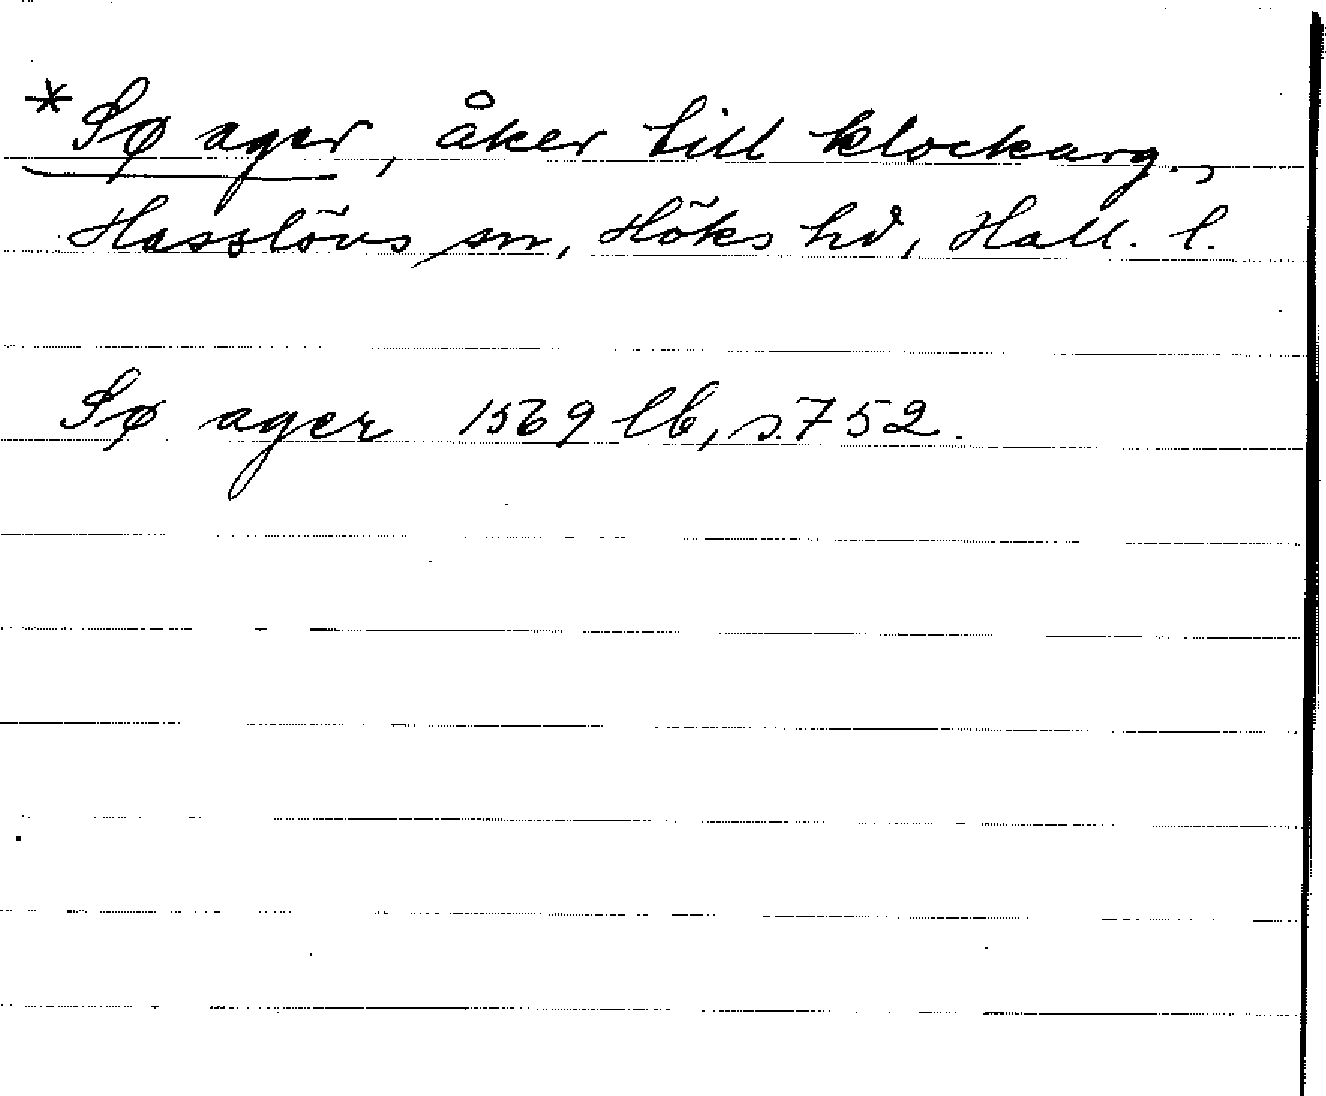 *Sø ager, åker till klockarg.,
Hasslövs sn, Höks hd, Hall. l.
Sø ager 1569 lb, s. 752.